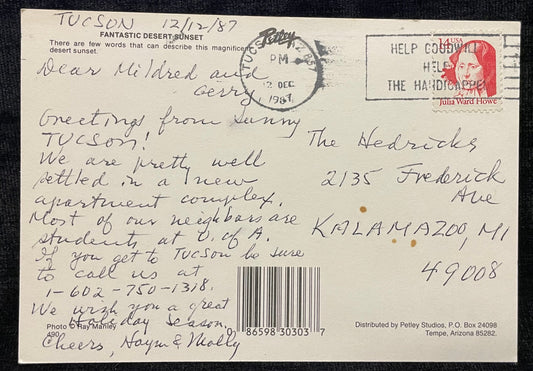 TUCSON 12/12/87
FANTASTIC DESERT SUNSET
There are few words that can describe this magnificent
desert sunset.
Petley
TUCS
PM
12 DEC
1987
HELP GOODWILL
HELP
THE HANDICAPPED
14 USA
Julia Ward Howe
Dear Mildred and
Gerry
Greetings from Sunny
TUCSON!
We are pretty well
settled in a new
apartment complex.
Most of our neighbors are
students at U. of A.
If you get to TUCSON be sure
to call us at
1-602-750-1318.
We wish you a great
Holiday Season.
Cheers, Haym & Molly
The Hedricks
2135 Frederick
Ave
KALAMAZOO, MI
49008
Photo © Ray Manley
490
0 86598 30303 7
Distributed by Petley Studios, P.O. Box 24098
Tempe, Arizona 85282.